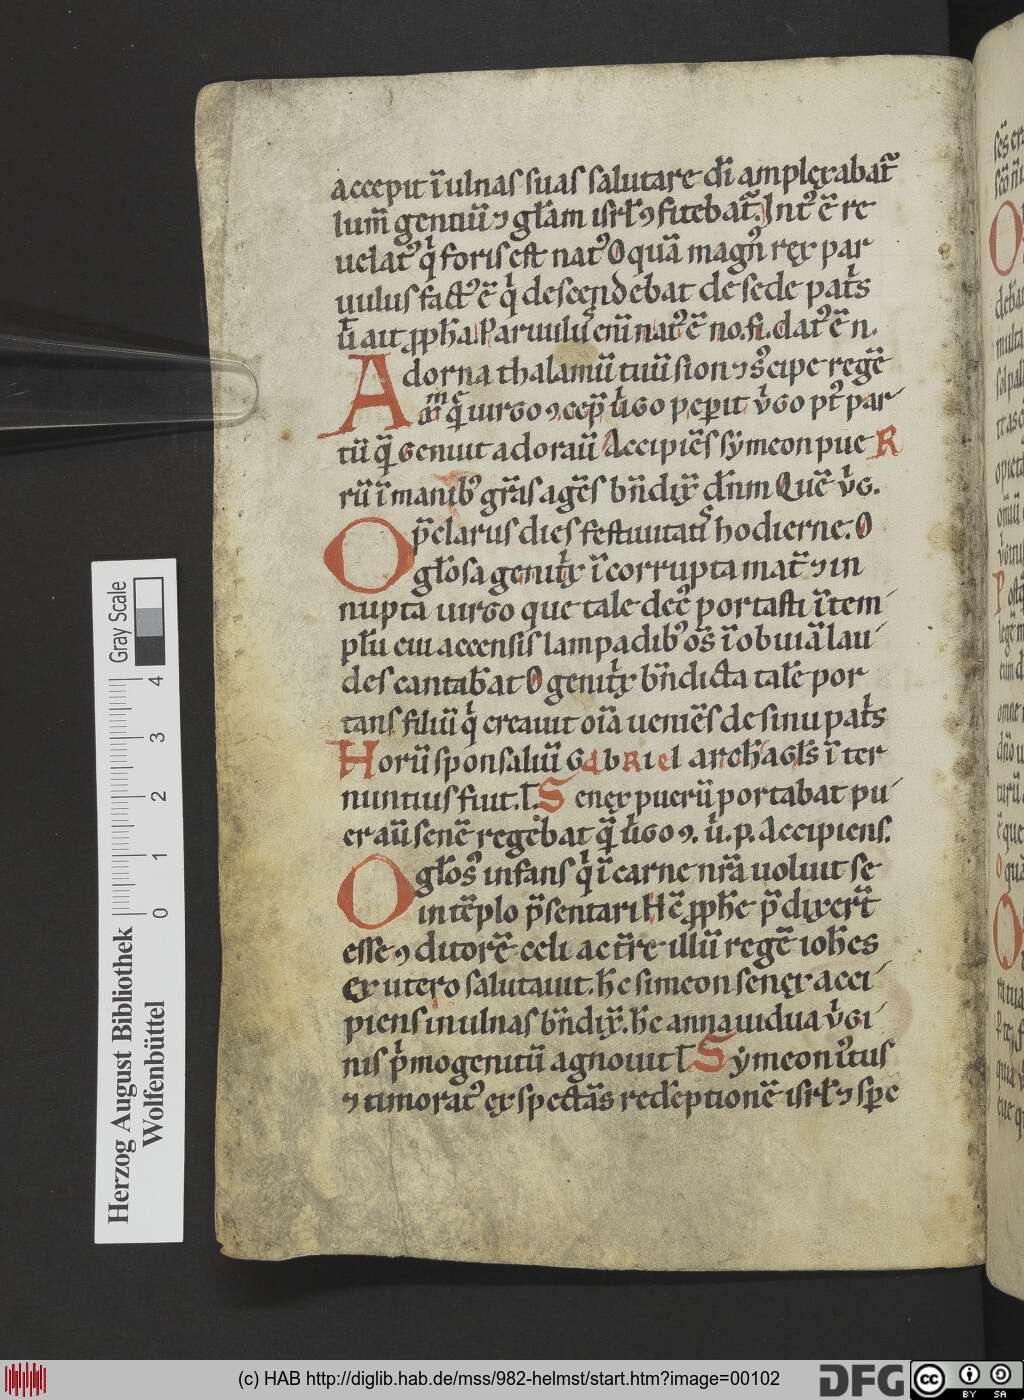 accepit ĩ ulnas suas salutare dĩ amplexabat᷑
lum̃ gentiũ ⁊ gl̃am isrl̃ ⁊ fitebat᷑. Int᷒ ẽ re
uelat᷒ qͥ foris est nat᷒ O quã magn᷒ rex par
uulus fact᷒ ẽ qͥ descendebat de sede pat͛s
ũ ait ꝓph̃a. Paruulu᷒ enĩ nat᷒ ẽ no. fi. dat᷒ ẽ n.
Adorna thalamũ tuũ sion ⁊ s᷒cipe regẽ
qͣ uirgo ⁊cep̃ uͥgo peꝑit vͥgo pt᷒ par
tũ quẽ genuit adorauĩt Accipiẽs sẏmeon pue R
rũ ĩ manib᷒ gr̃as agẽs bñdix̃ dñm Quẽ vͥg.
O p̃clarus dies festiuitati᷒ hodierne. O
gl̃osa genitͥx ĩcorrupta mat͛ ⁊ in
nupta uirgo que tale dec᷒ portasti ĩ tem
pl̃u cui accensis lampadib᷒ om̃s ĩ obuiã lau
des cantab̃at O genitͥx bñdicta talẽ por
tans filiũ qͥ creauit oĩa ueniẽs de sinu pat͛s
Horũ sponsaliũ Gabriel archagl̃s ĩ ter
nuntius fuit. ĩ. Senex puerũ portabat pu
er aũ senẽ regebat qͣ uͥgo ⁊. ũ. p. Accipiens.
O gl̃os᷒ infans qͥ ĩ carne nr̃a uoluit se
in tẽplo p̃sentari Hẽc ꝓph̃e p̃dixer̃t
esse ⁊ ditorẽ celi ac t͛re illũ regẽ ioh̃es
ex utero salutauit. h̃c simeon senex acci
piens in ulnas bñdix̃. h̃c anna uidua vͥgi
nis pͥmogenitũ agnouit ĩ Sẏmeon i᷒tus
⁊ timorat᷒ expectãs redẽptionẽ isrl̃ ⁊ spe
Gray Scale
4
3
2
1
0
Herzog August Bibliothek
Wolfenbüttel
(c) HAB http://diglib.hab.de/mss/982-helmst/start.htm?image=00102
DFG
cc
BY SA